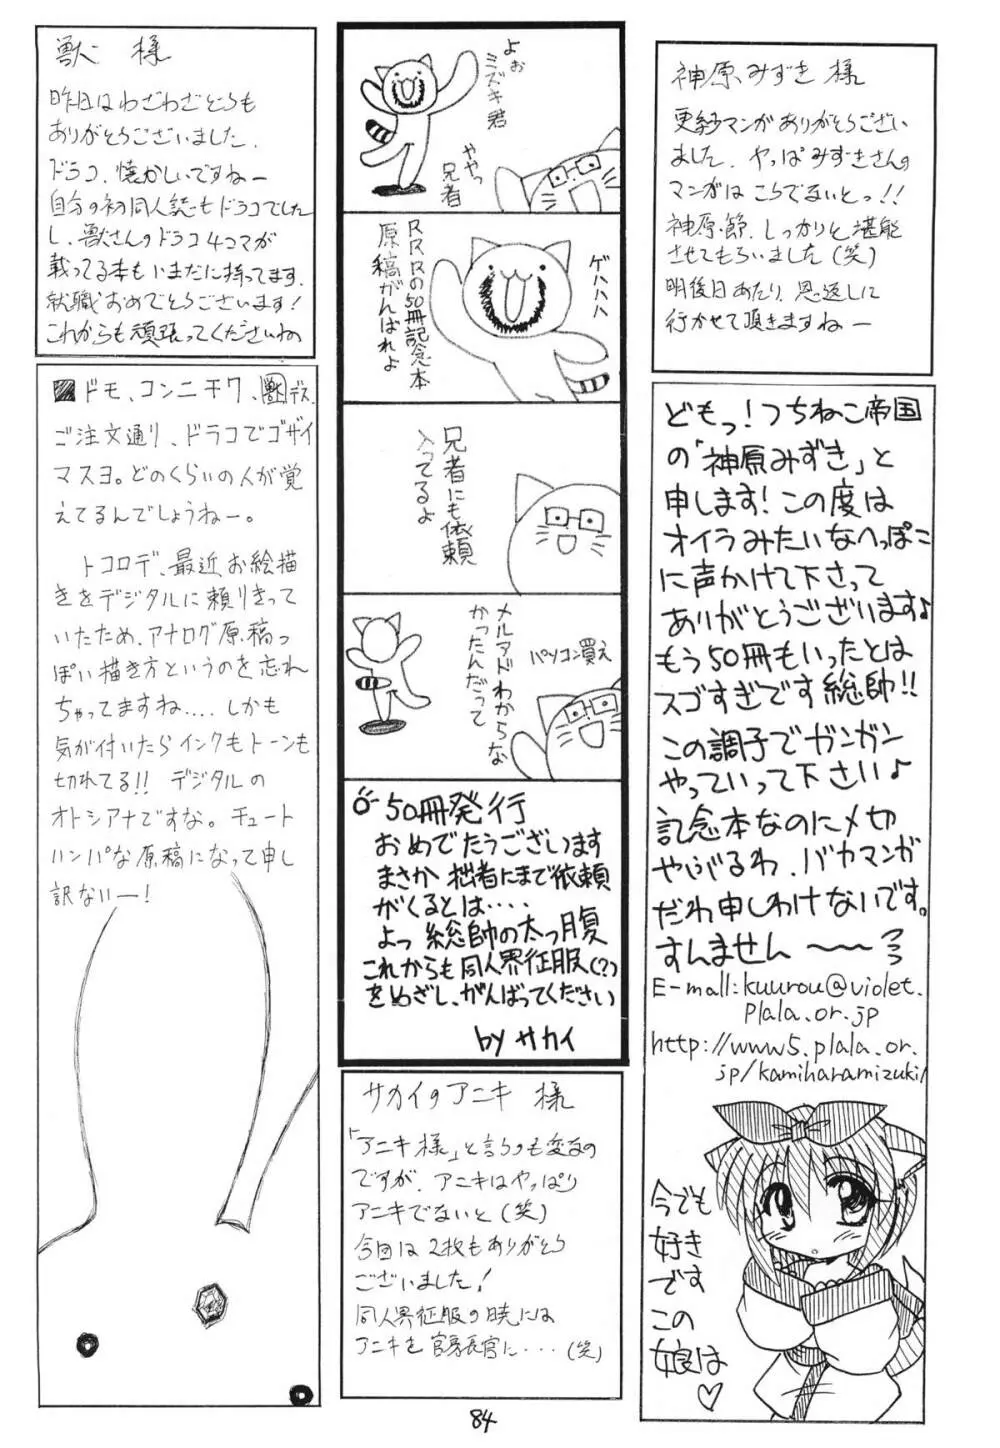 獣 様
昨日はわざわざどうも
ありがとうございました.
ドラコ、懐かしいですねー
自分の初同人誌もドラコでした
し、獣さんのドラコ4コマが
載ってる本もいまだに持ってます.
就職おめでとうございます!
これからも頑張ってくださいね
ドモ、コンニチワ、獣デス.
ご注文通り、ドラコでゴザイ
マスヨ。どのくらいの人が覚
えてるんでしょうねー。
トコロデ、最近お絵描
きをデジタルに頼りきって
いたため、アナログ原稿っ
ぽい描き方というのを忘れ
ちゃってますね.... しかも
気が付いたらインクもトーンも
切れてる!! デジタルの
オトシアナですな。チュート
ハンパな原稿になって申し
訳ないー!
よぉ
ミズキ君
ややっ
兄者
RRRの50冊記念本
原稿がんばれよ
ゲハハハ
兄者にも依頼
入ってるよ
メルアドわからな
かったんだって
パソコン買え
50冊発行
おめでたうございます
まさか拙者にまで依頼
がくるとは・・・・
よっ 総帥の太っ腹
これからも同人界征服(?)
をめざし、がんばってください
by サカイ
サカイのアニキ 様
「アニキ様」と言うのも変なの
ですが、アニキはやっぱり
アニキでないと(笑)
今回は2枚もありがとう
ございました!
同人界征服の暁には
アニキを官房長官に・・・(笑)
神原みずき 様
更紗マンガありがとうござい
ました. やっぱみずきさんの
マンガはこうでないとっ!!
神原節、しっかりと堪能
させてもらいました(笑)
明後日あたり、恩返しに
行かせて頂きますねー
どもっ!つちねこ帝国
の「神原みずき」と
申します!この度は
オイラみたいなへっぽこ
に声かけて下さって
ありがとうございます♪
もう50冊もいったとは
スゴすぎです総帥!!
この調子でガンガン
やっていって下さい♪
記念本なのに〆切
やぶるわ、バカマンガ
だわ申しわけないです。
すんません〜〜
E-mall:kuurou@violet.
plala.or.jp
http://www5.plala.or.
jp/kamiharamizuki/
今でも
好き
です
この
娘は♡
84